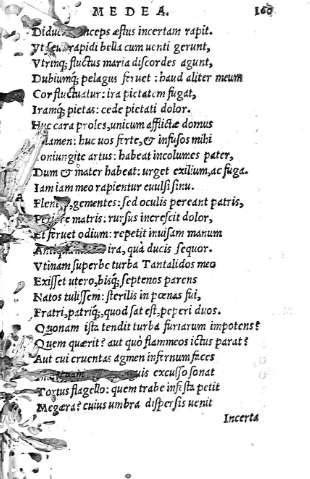 MEDEA. 160
Diduc nceps æstus incertam rapit.
Vt rapidi bella cum uenti gerunt,
Vtrinq; fluctus maria discordes agunt,
Dubiumq; pelagus feruet: haud aliter meum
Cor fluctuatur: ira pietatem fugat,
Iramq; pietas: cede pietati dolor.
Huc cara proles, unicum afflictæ domus
lamen: huc uos ferte, & infusos mihi
Coniungite artus: habeat incolumes pater,
Dum & mater habeat: urget exilium, ac fuga.
Iam iam meo rapientur euulsi sinu.
Flent, gementes: sed oculis pereant patris,
matris: rursus increscit dolor,
Et feruet odium: repetit inuisam manum
Antiqua ira, quà ducis sequor.
Vtinam superbe turba Tantalidos meo
Exisset utero, bisq; septenos parens
Natos tulissem: sterilis in pœnas fui,
Fratri, patriq; quod sat est, peperi duos.
Quonam ista tendit turba furiarum impotens?
Quem quærit? aut quò flammeos ictus parat?
Aut cui cruentas agmen infernum faces
uis excusso sonat
Tortus flagello: quem trabe infesta petit
Megæra? cuius umbra dispersis uenit
Incerta